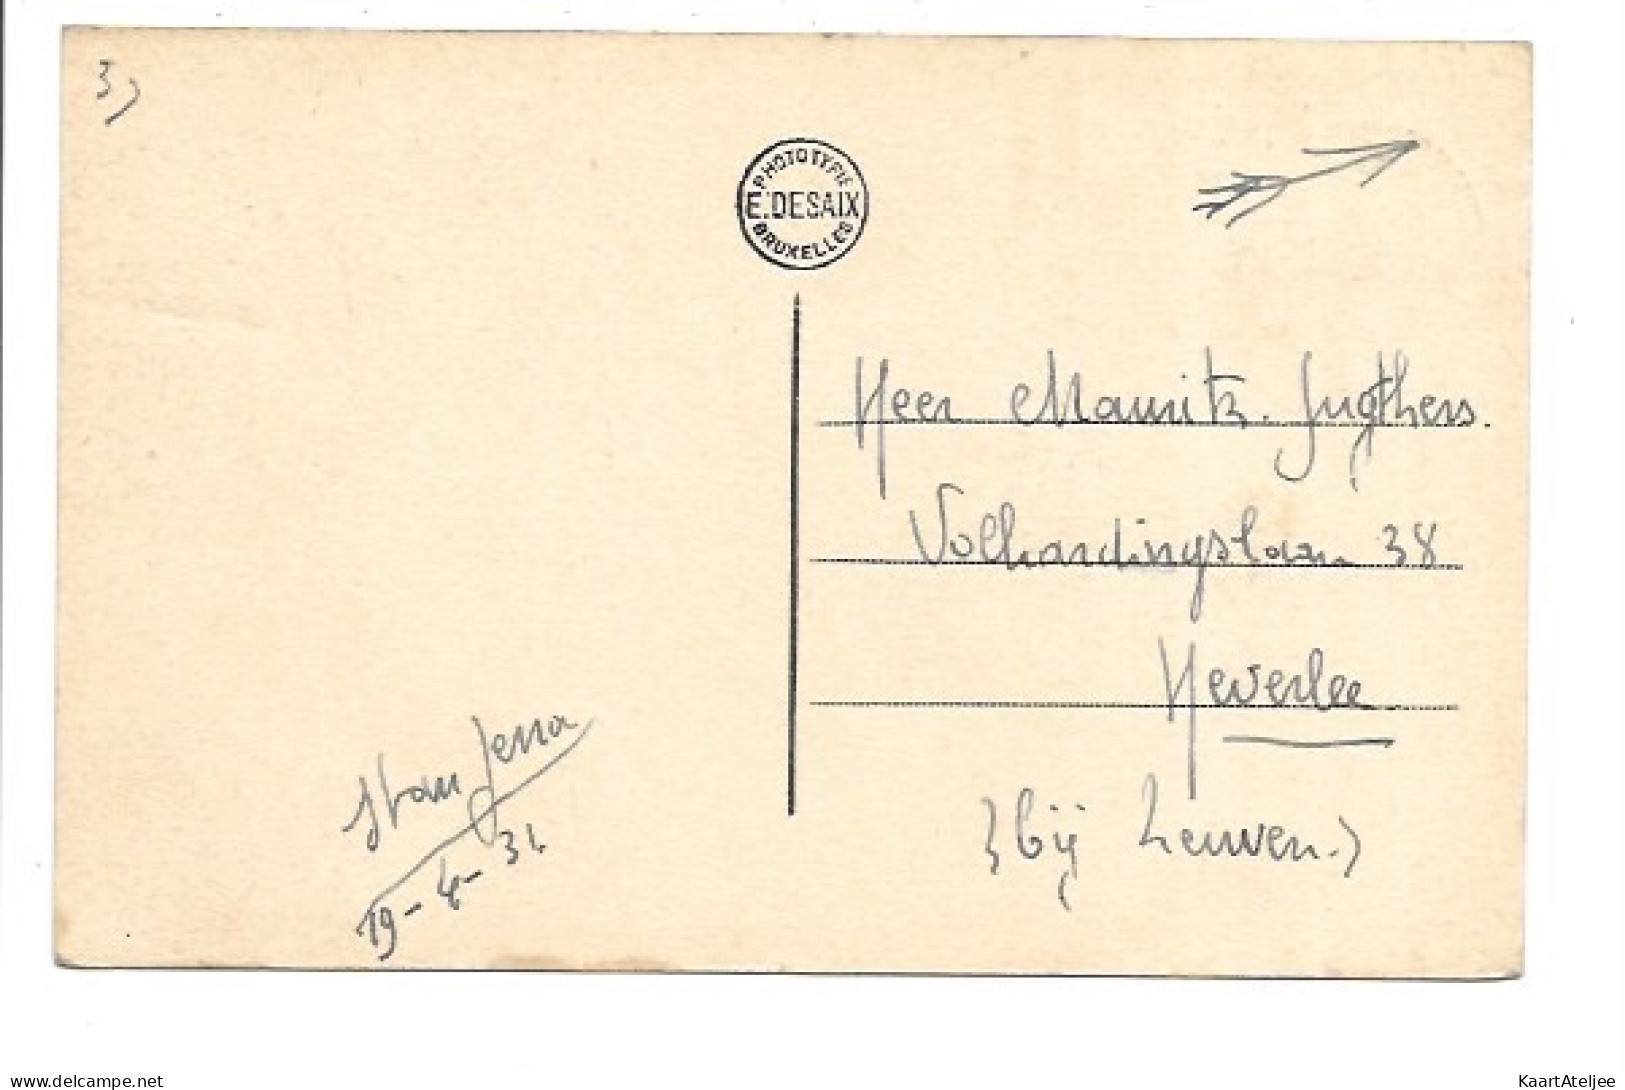 3)
PHOTOTYPIE
E. DESAIX
BRUXELLES
Heer Maurits
Volhardingslaan 38
Heverlee
(bij Leuven.)
Stan
19-4-34
delcampe.net
KaartAteljee